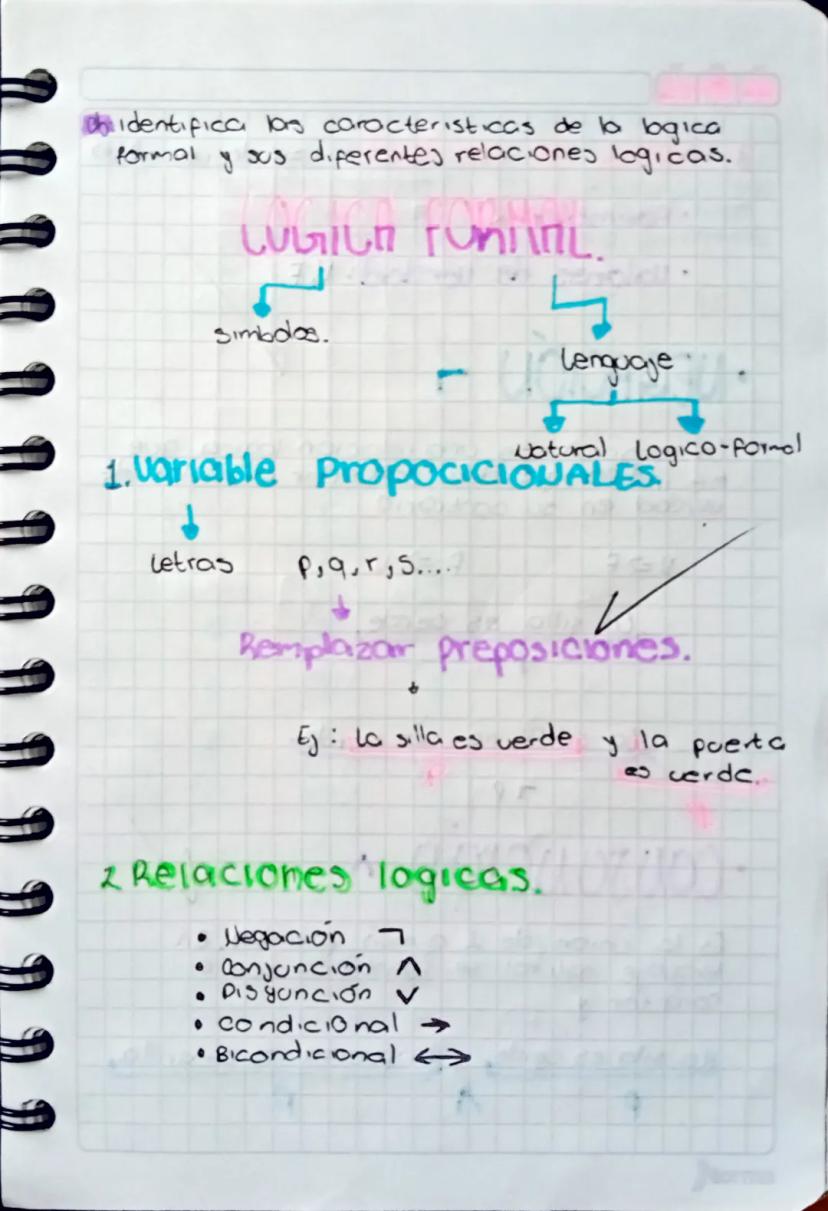 identifica las caracteristicas de la logica
formal y sus diferentes relaciones logicas.
LOGICA FORMAL.
simbolos.
Lenguaje
Natural Logico-formal
1. Variable PROPOCICIONALES.
Letras p, q, r, s....
Remplazar preposiciones.
Ej: La silla es verde y la puerta
es verde.
2 Relaciones logicas.
• Negación ¬
• conjunción ∧
• Disyunción ∨
• condicional →
• Bicondicional ↔
norma